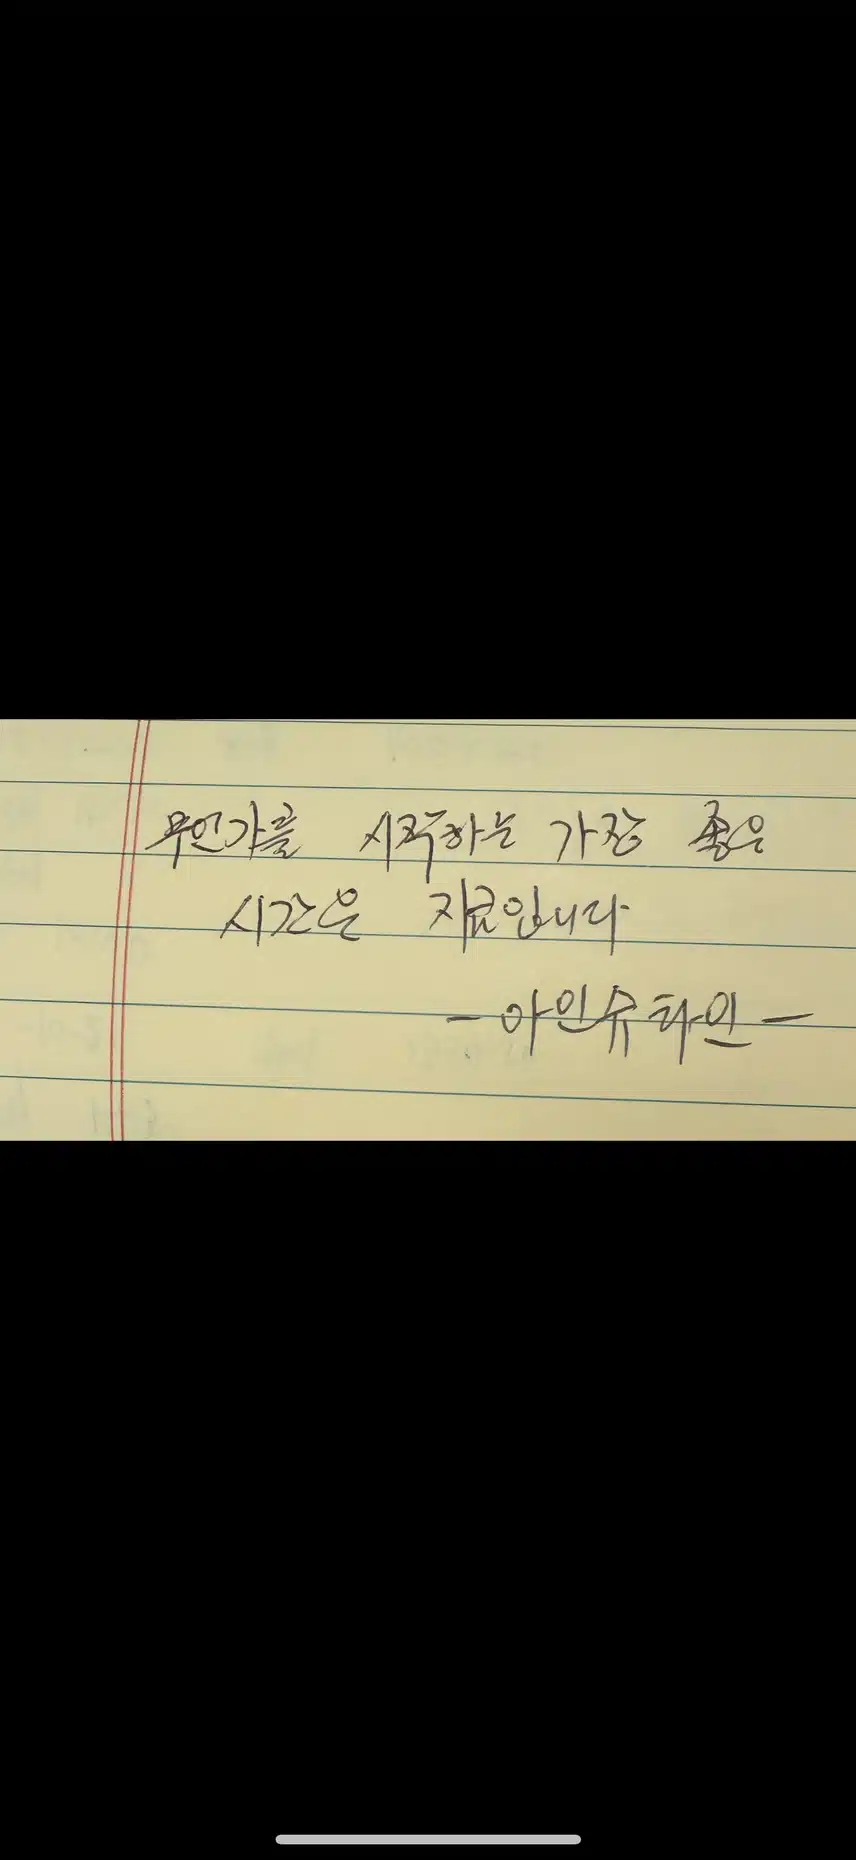 무언가를 시작하는 가장 좋은
시간은 지금입니다
- 아인슈타인 -